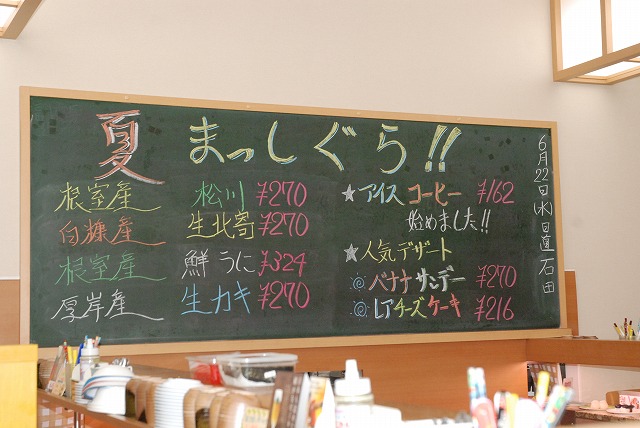 夏 まっしぐら!!
根室産 松川 ¥270
白糠産 生北寄 ¥270
根室産 鮮うに ¥324
厚岸産 生カキ ¥270
★アイスコーヒー ¥162
始めました!!
★人気デザート
バナナサンデー ¥270
レアチーズケーキ ¥216
6月22日(水)日直 石田